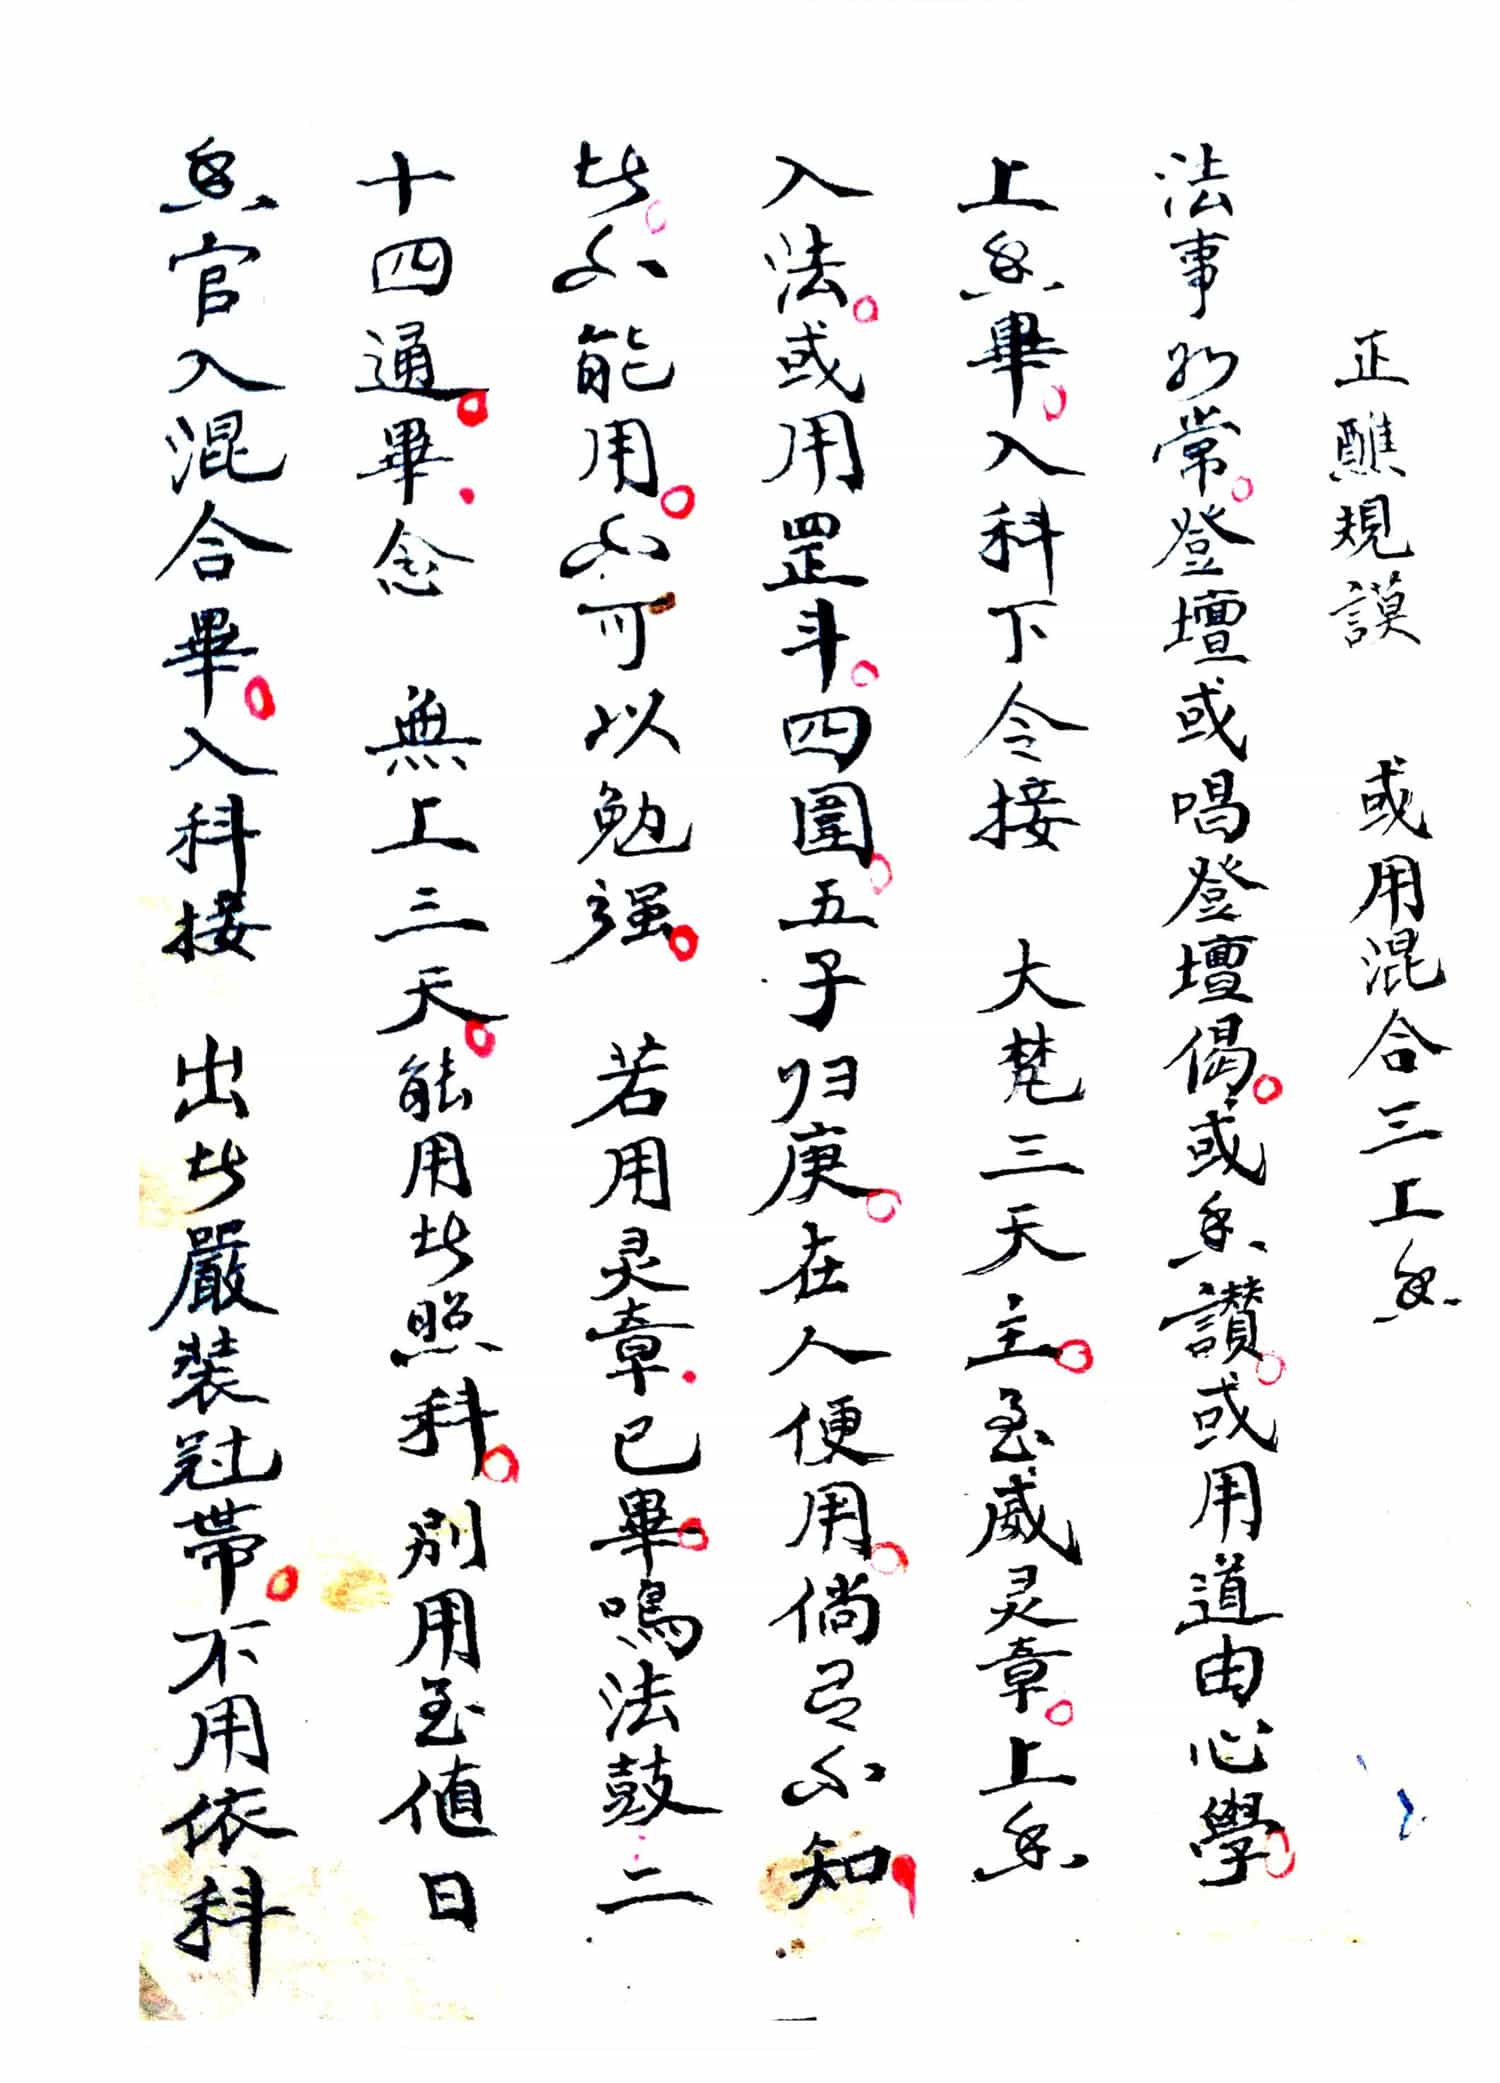 正醮規謨　或用混合三上香
法事如常。登壇或唱登壇偈。或香讚。或用道由心學。
上香畢。入科下令接　大梵三天主。至威灵章。上香
入法。或用罡斗。四圍。五子归庚。在人便用。倘若不知
此。不能用。不可以勉强。　若用灵章.已畢。鳴法鼓二
十四通。畢.念　無上三天。能用此照科。別用至值日
香官入混合畢。入科接　出此嚴裝冠带。不用依科